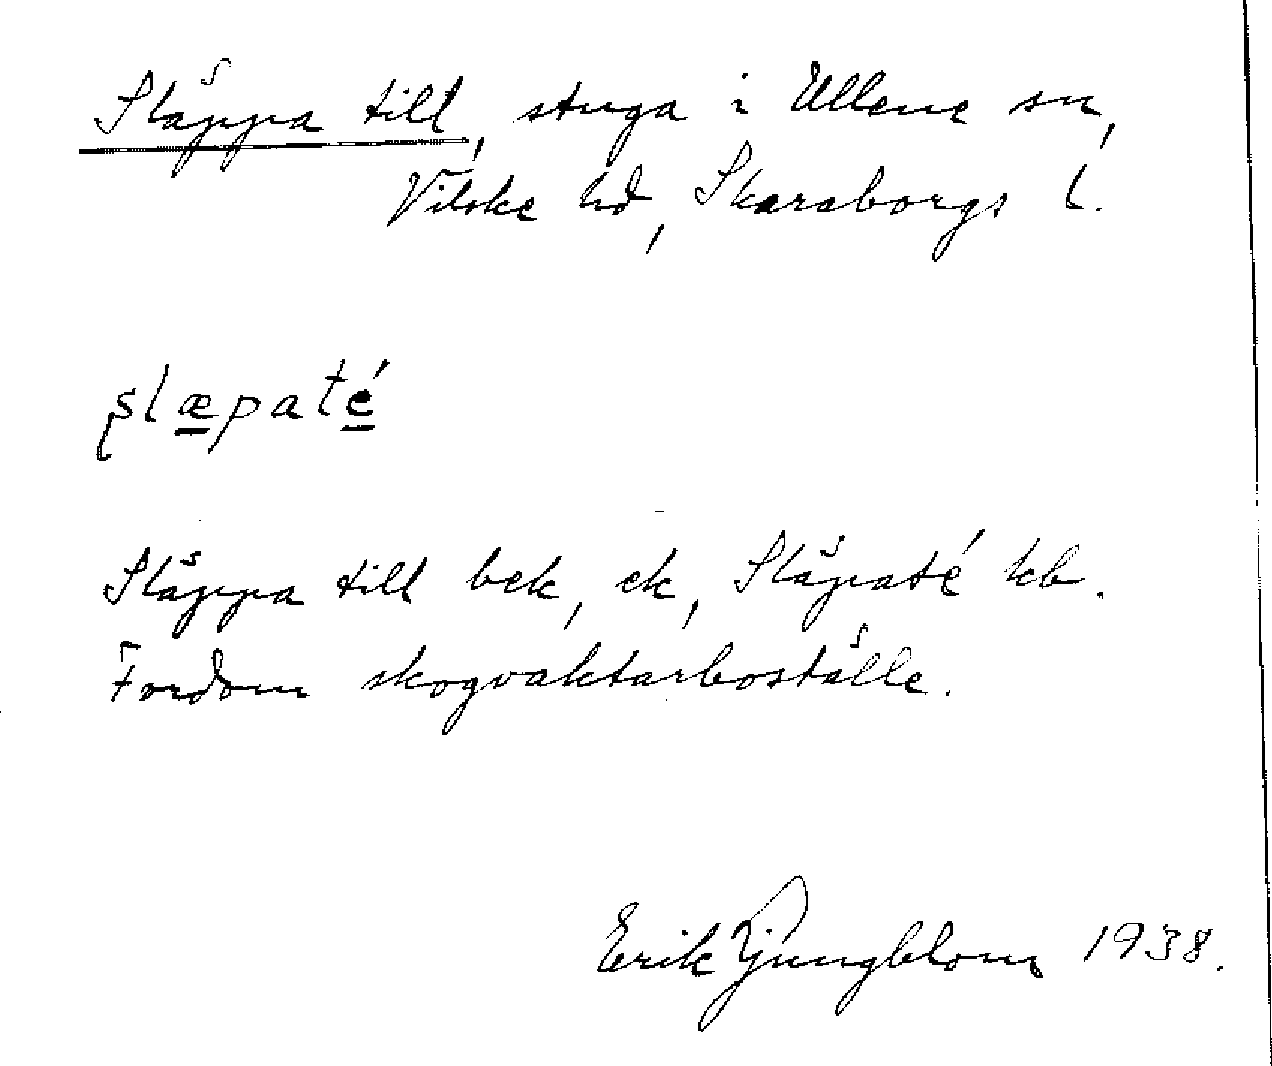 Släppa till, stuga i Ullene sn,
Vilske hd, Skaraborgs l.
slæpaté
Släppa till bek, ek, Släpaté kb.
Fordom skogvaktarboställe.
Erik Ljungblom 1938.